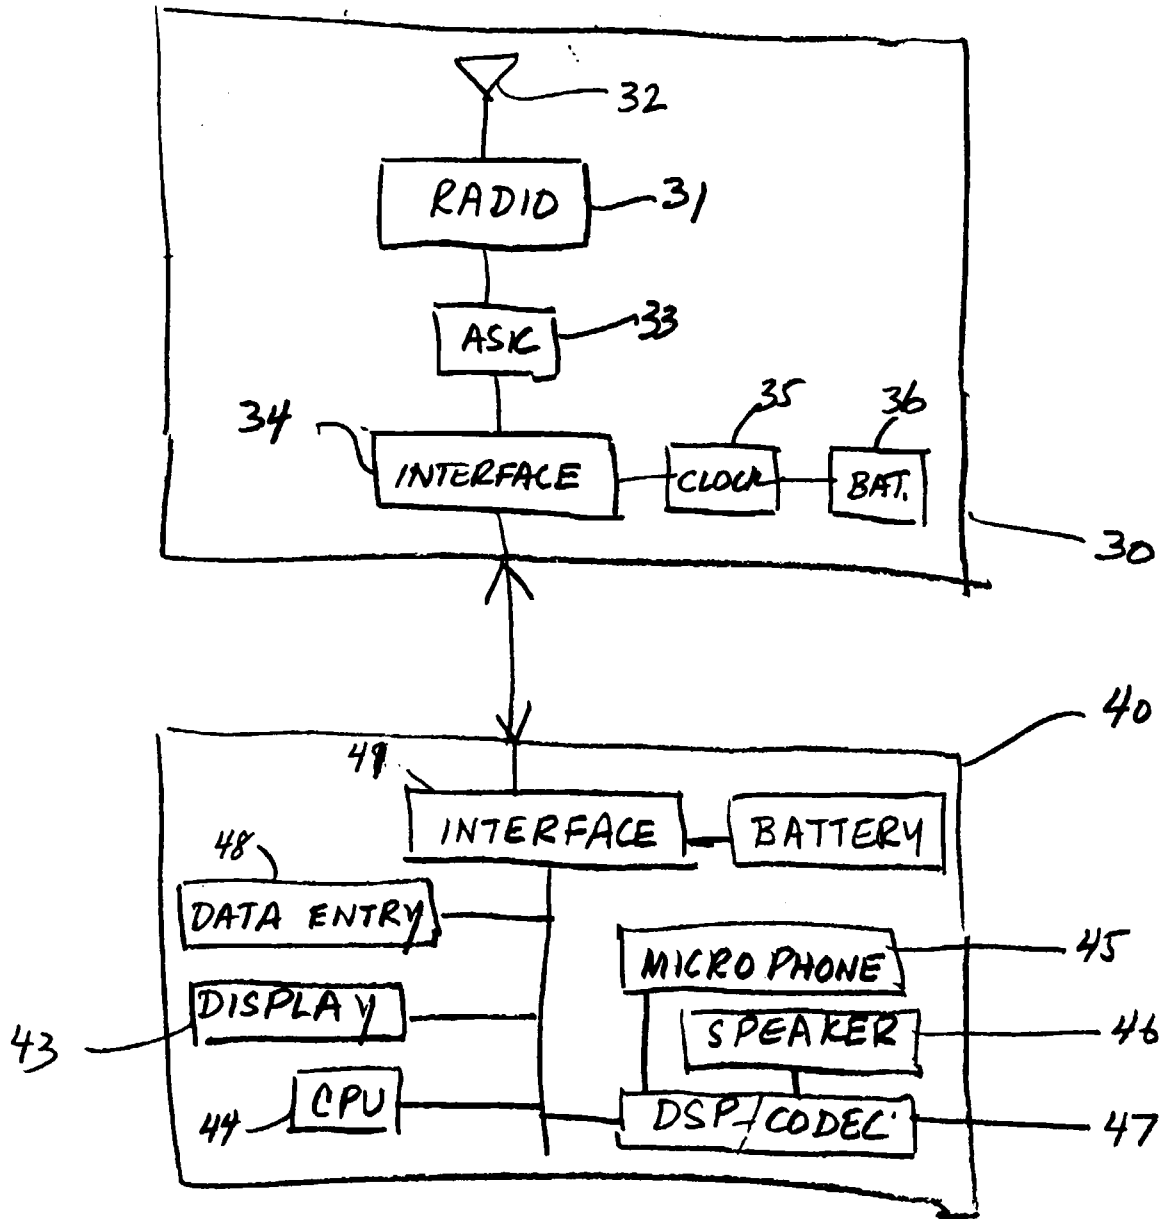 32
RADIO
31
ASIC
33
34
INTERFACE
35
CLOCK
36
BAT.
30
40
49
INTERFACE
BATTERY
48
DATA ENTRY
MICROPHONE
45
DISPLAY
43
SPEAKER
46
CPU
44
DSP/CODEC
47